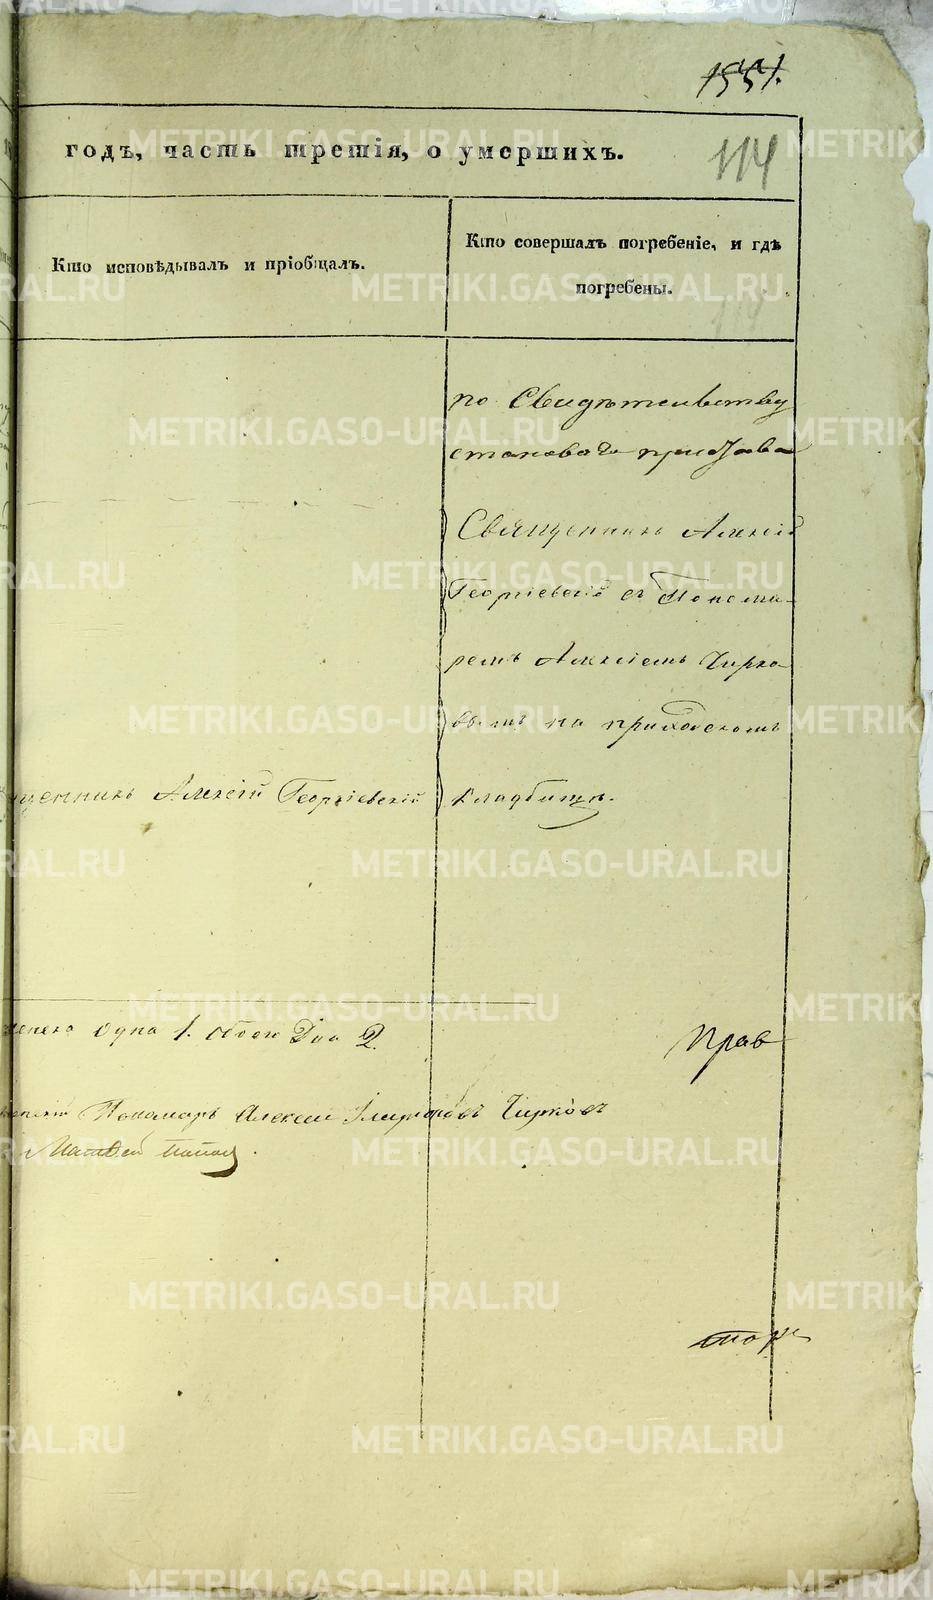 1551.
годъ, часть третія, о умершихъ.
114
Кто исповѣдывалъ и пріобщалъ.
Кто совершалъ погребеніе, и гдѣ
погребены.
по Свидѣтельству
становаго пристава
Священникъ Алексѣй
Георгіевскій съ Понома-
ремъ Алексѣемъ Чирко-
вымъ на приходскомъ
кладбищѣ.
щенникъ Алексѣй Георгіевскій
одна 1. обоего Два 2.
Прав
Пономарь Алексѣй Чирковъ
Матвей Попов
METRIKI.GASO-URAL.RU